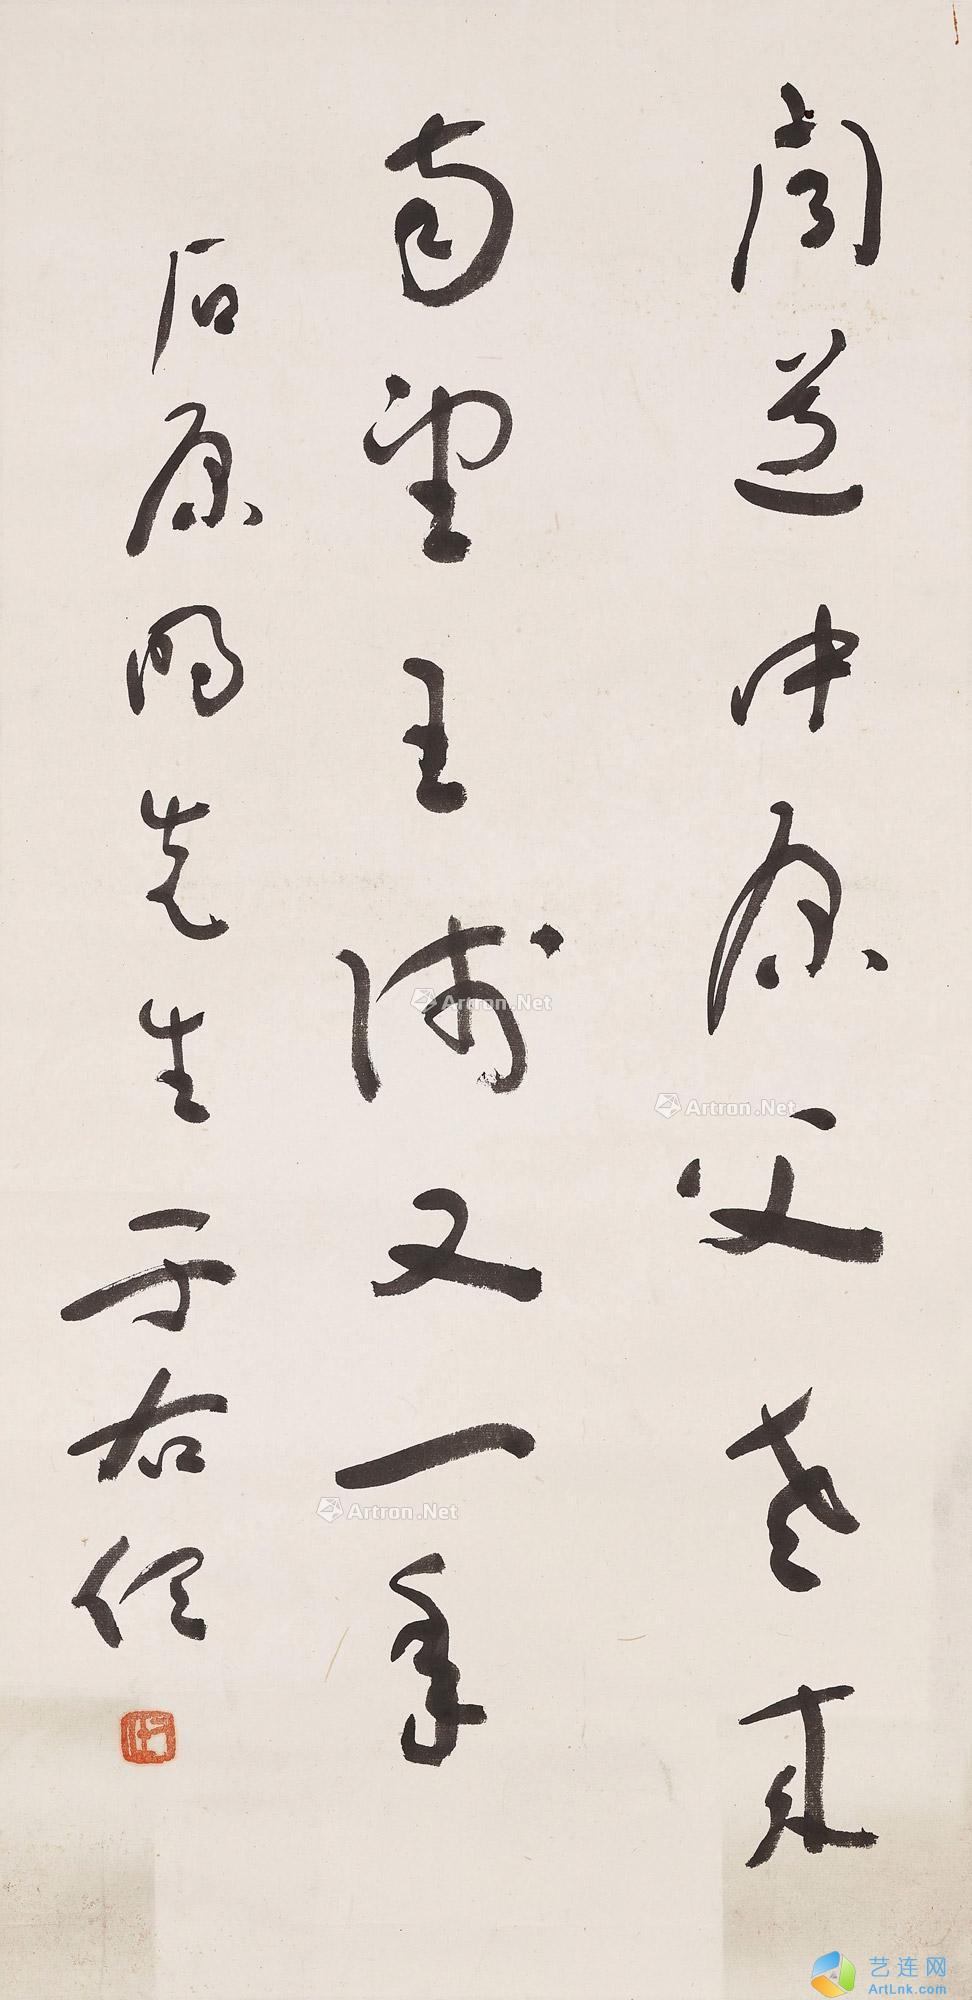 聞道中原父老
南望王師又一年
石原明先生 于右任
Artron.Net
Artron.Net
Artron.Net
艺连网
ArtLnk.com